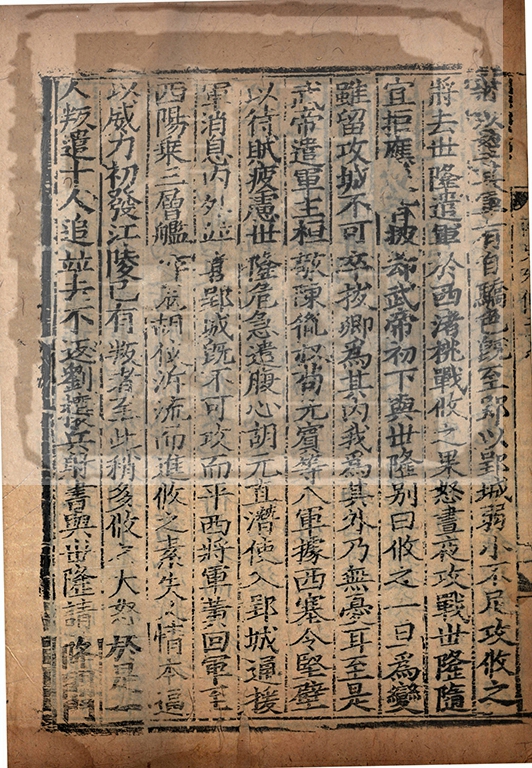 有自驕色既至郢以郢城弱小不足攻攸之
將去世隆遣軍於西渚挑戰攸之果怒晝夜攻戰世隆隨
宜拒應披却武帝初下與世隆别曰攸之一旦爲變
雖留攻城不可卒拔卿爲其内我爲其外乃無憂耳至是
武帝遣軍主桓敬陳胤叔苟元賓等八軍據西塞令堅壁
以待賊疲慮世隆危急遣腹心胡元直潛使入郢城通援
軍消息内外並喜郢城既不可攻而平西將軍黄回軍至
西陽乘三層艦胡伎泝流而進攸之素失人情本逼
以威力初發江陵已有叛者至此稍多攸之大怒於是一
人叛遣十人追並去不返劉攘兵射書與世隆請降開門